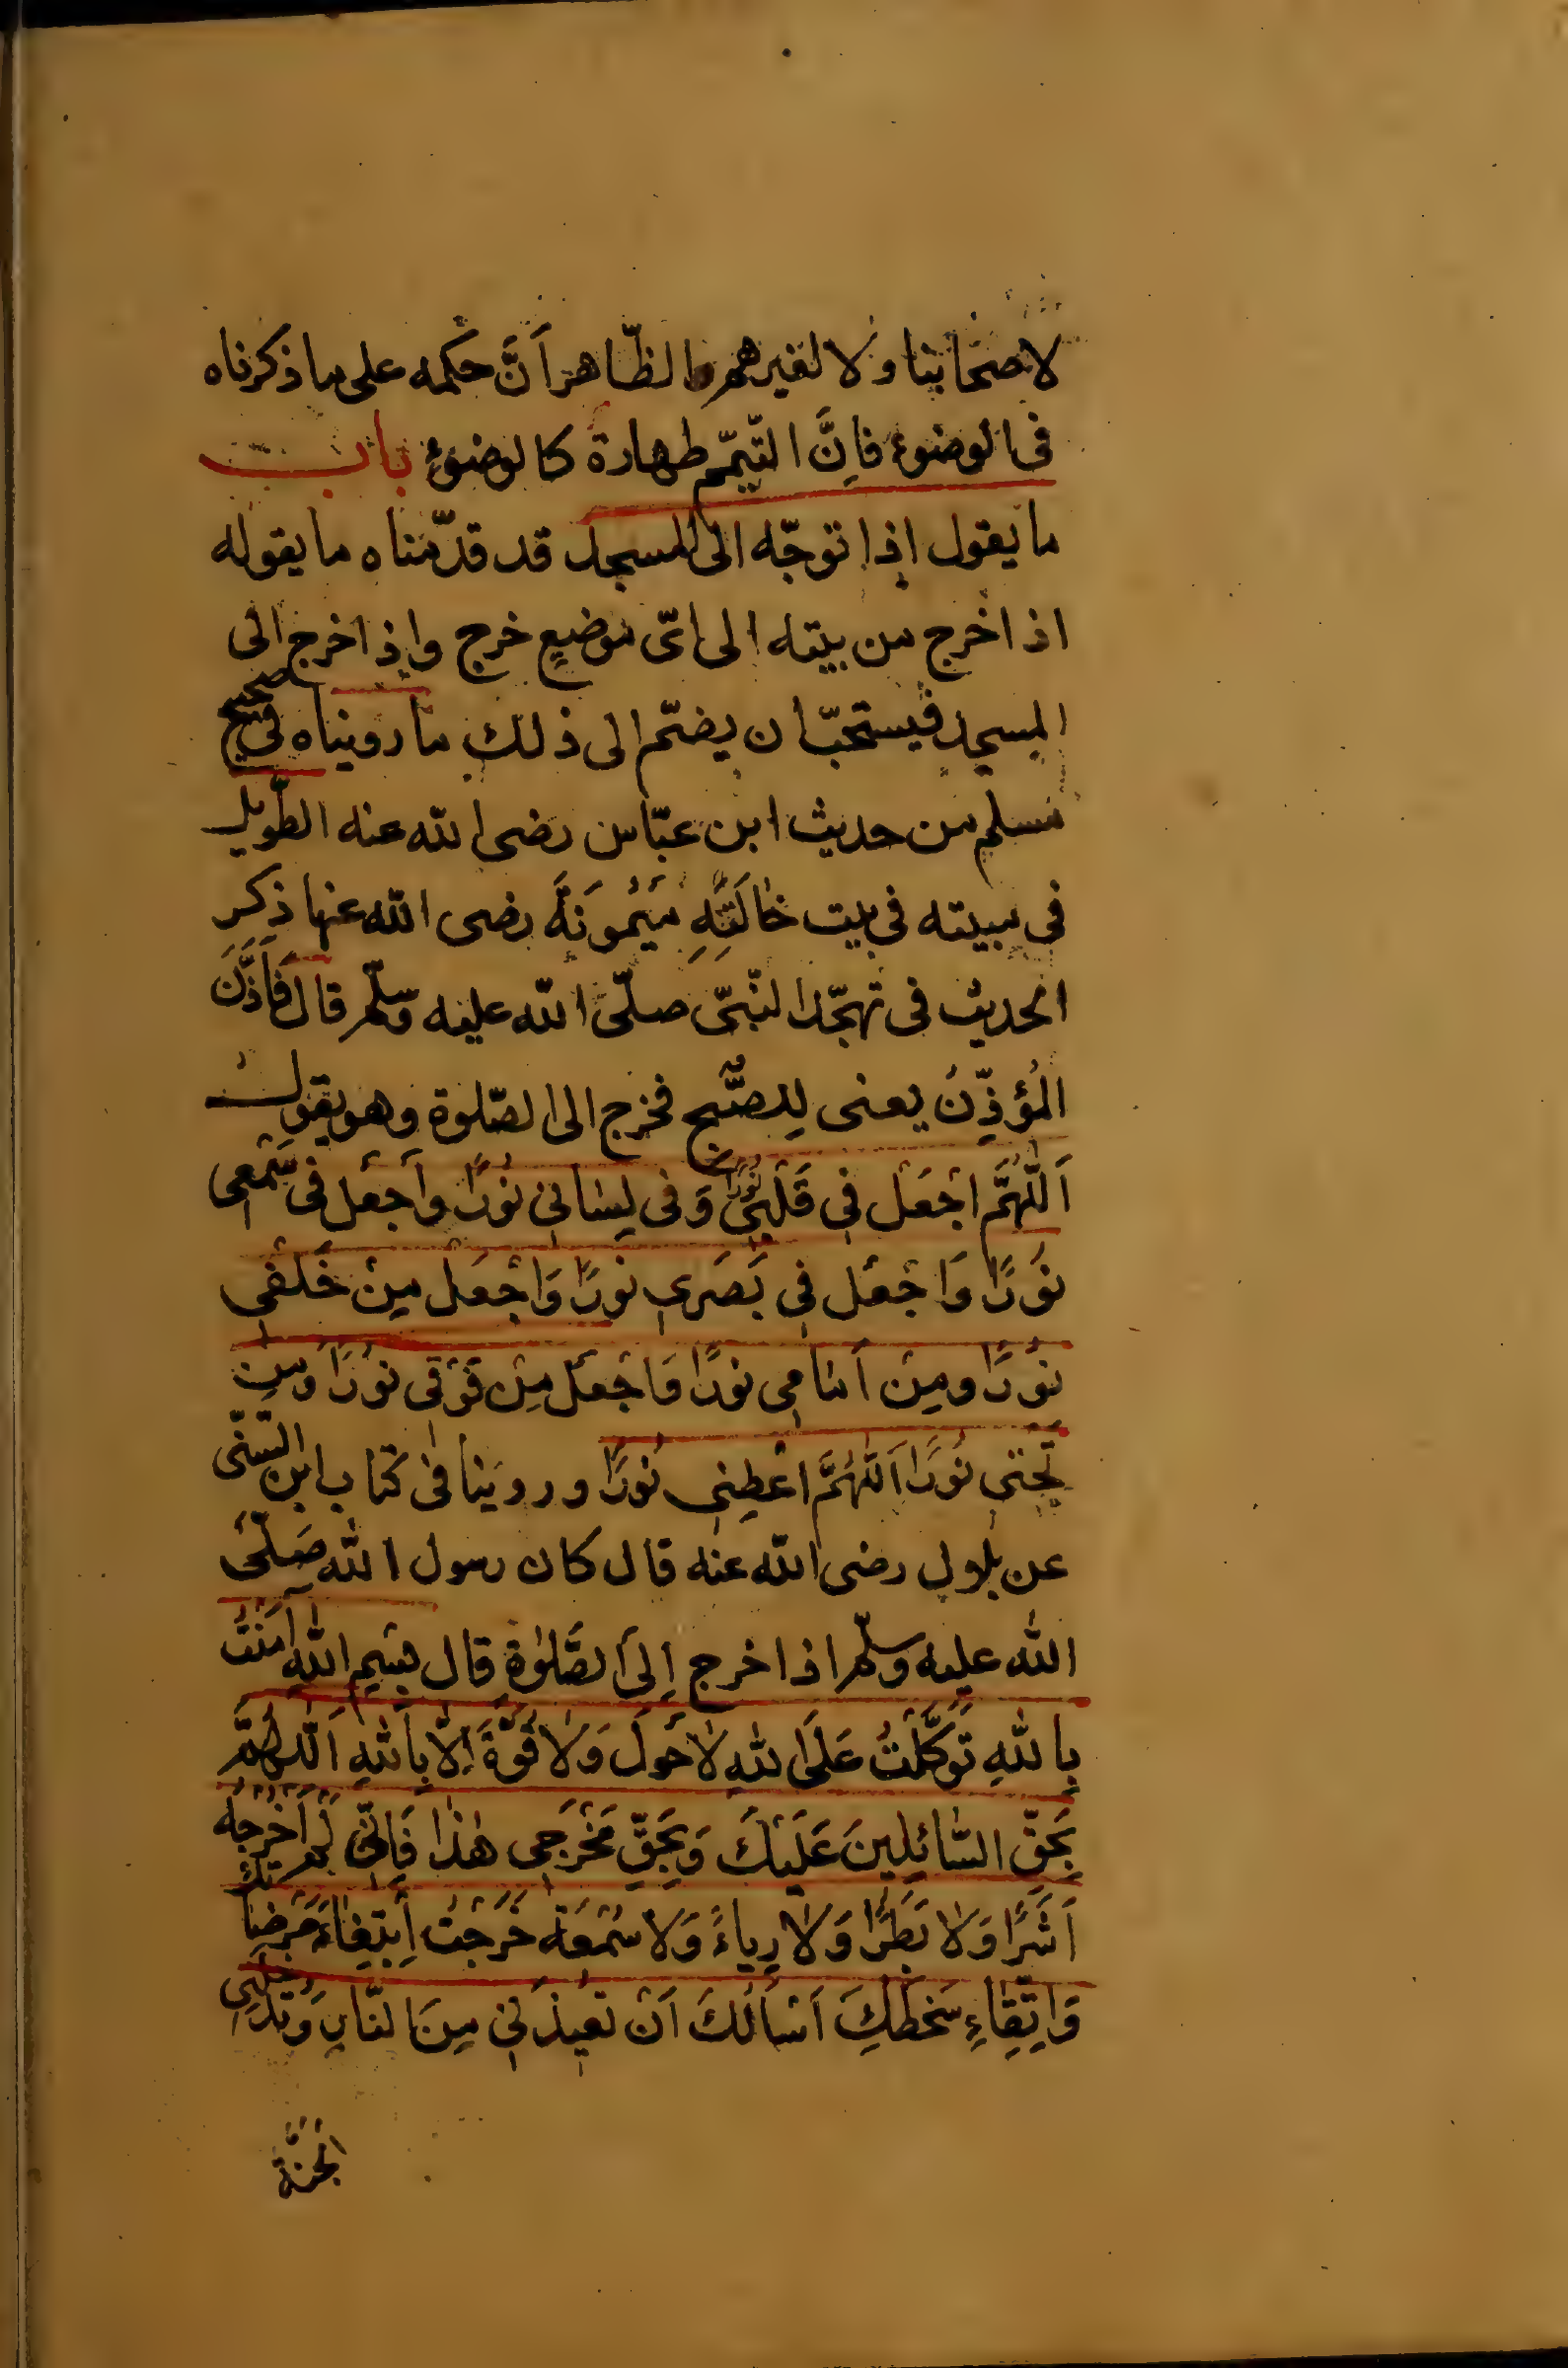 لاصحابنا ولا لغيرهم والظّاهر أنَّ حكمه على ما ذكرناه
فى الوضوء فاِنَّ التّيمّم طهارة كالوضوء باب
ما يقول اذا توجّه الى المسجد قد قدّمناه ما يقوله
اذا خرج من بيته الى اىّ موضعٍ خرج واذا خرج الى
المسجد فيستحبّ ان يضمّ الى ذلك ما رويناه فى صحيح
مسلم من حديث ابن عبّاس رضى الله عنه الطّويل
فى مبيته فى بيت خالَتِهِ مَيْمُونَةَ رضى الله عنها ذكر
الحديث فى تهجّد النّبىّ صلّى الله عليه وسلّم قال فَأَذَّنَ
المُؤَذِّنُ يعنى لِلصُّبح فخرج الى الصّلوة وهو يقول
اَللّٰهُمَّ اجْعَلْ فِى قَلْبِى نُورًا وَفى لِسَانِى نُورًا وَأجْعَل فى سَمْعِى
نُورًا وَاجْعَل فِى بَصَرِى نورًا وَاجْعَل مِنْ خَلْفِى
نُورًا ومِنْ اَمَامِى نورًا وَاجْعَلْ مِنْ فَوْقِى نُورًا وَمِنْ
تَحْتِى نُورًا اَللّٰهُمَّ اعْطِنِى نُورًا وروينا فى كتاب ابن السّنّى
عن بلال رضى الله عنه قال كان رسول الله صَلّى
الله عليه وسلّم اذا خرج إلى الصَّلوٰةِ قال بِسْمِ اللهِ آمَنْتُ
بِاللهِ تَوَكَّلْتُ عَلَى اللهِ لَا حَوْلَ وَلَا قُوَّةَ اِلّا بِاللهِ اَللّٰهُمَّ
بِحَقِّ السَّائِلِينَ عَلَيْكَ وَبِحَقِّ مَخْرَجِى هٰذَا فَاِنِّى لَمْ اَخْرُجْهُ
اَشَرًا وَلَا بَطَرًا وَلَا رِيَاءً وَلَا سُمْعَةً خَرَجْتُ اِبْتِغَاءَ مَرْضَاتِكَ
وَاِتِّقَاءِ سَخَطِكَ اَسْاَلُكَ اَنْ تُعِيذَنِى مِنَ النَّارِ وَتُدْخِلَنِى
الجَنَّةَ